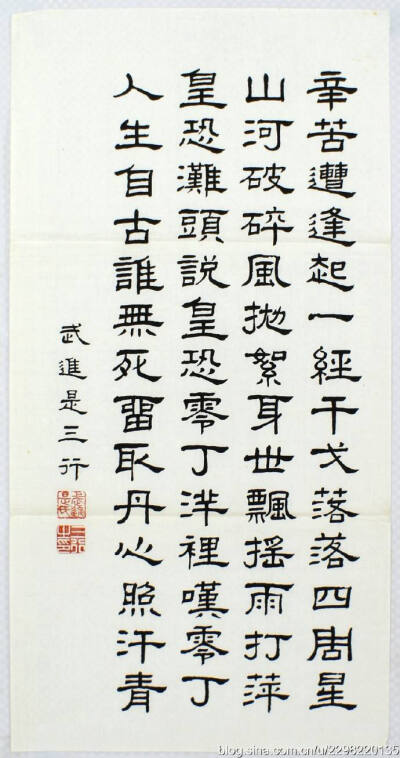 辛苦遭逢起一經干戈落落四周星
山河破碎風拋絮身世飄搖雨打萍
皇恐灘頭說皇恐零丁洋裡嘆零丁
人生自古誰無死留取丹心照汗青
武進是三行
blog.sina.com.cn/u/2298220135